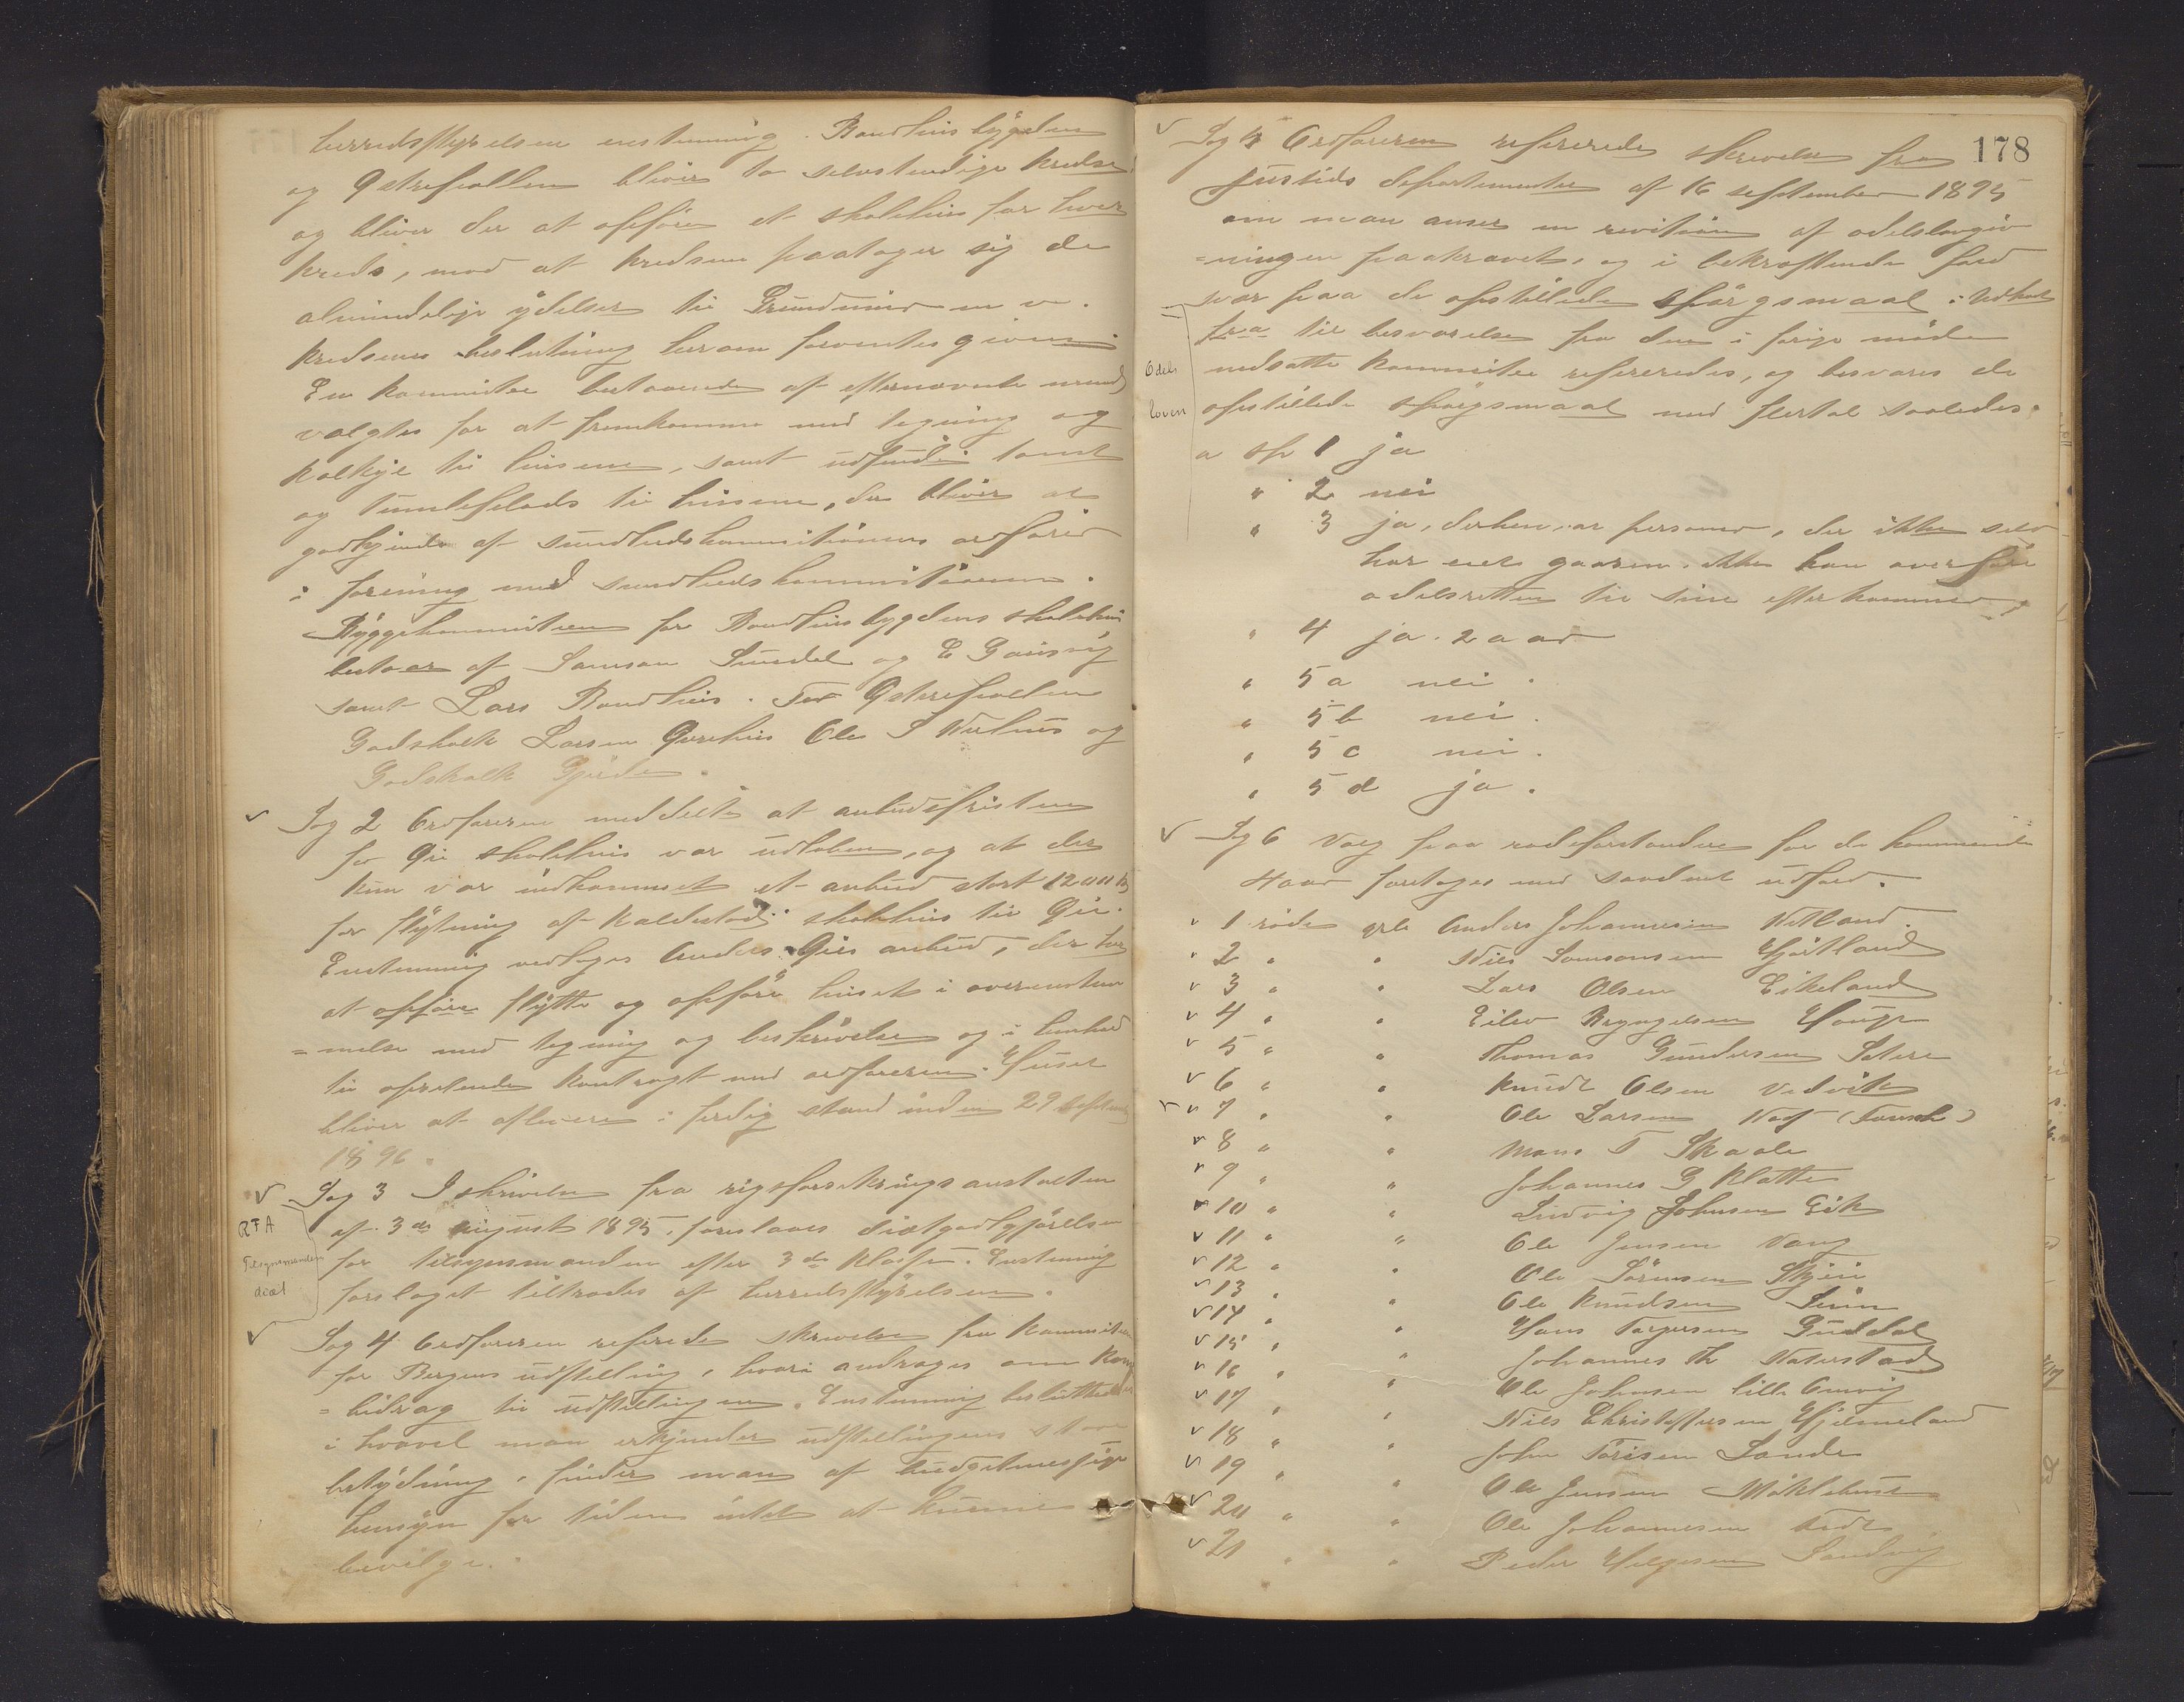 herredsstyrelsen enstemmig. Bondhusbygden
og Østrepollen bliver to selvstendige kredse
og bliver der at opføre et skolehus for hver
kreds, mod at kredsene paatager sig de
almindelige ydelser til Grundmur m v.
kredsenes beslutning herom forventes given
En kommitee bestaaende af efternævnte mænd
valgtes for at fremkomme med tegning og
kalkyle til husene, samt udfinde tomt
og tumleplads til husene, der bliver at
godkjende af sundhedskommitionens ordfører
i forening med sundhedskommitionen.
Byggekommiteen for Bondhusbygdens skolehus
bestaaer af Samson Sundal og E Gausvig
samt Lars Bondhus. For Østrepollen
Godskalk Larsen Øvrehus Ole S Nerhus og
Godskalk Gjerde.
Sag 2 Ordføreren meddelte at anbudsfristen
for Øie skolehus var udløben, og at der
kun var indkommet et anbud stort 1200 kr
for flytning af Kaldestads skolehus til Øie.
Enstemmig vedtages Anders Øies anbud, der har
at opføre flytte og opføre huset i overenstem
=melse med tegning og beskrivelse og i henhold
til oprettende kontragt med ordføreren. Huset
bliver at aflevere i ferdig stand inden 29 september
1896.
Sag 3 I skrivelse fra rigsforsekringsanstalten
RFA
af 3de august 1895, foreslaaes diætgodtgjørelsen
Tilsynsmandens
for tilsynsmanden efter 3de klasse. Enstemmig
diæt
forslaget tiltrædes af herredsstyrelsen.
Sag 4. Ordføreren referede skrivelse fra kommiteen
for Bergens udstilling, hvori andrages om
=bidrag til udstillingen. Enstemmig besluttedes
i hvorvel man erkjender udstillingens store
betydning, finder man af budgetmessige
hensyn for tiden intet at kunne
bevilge.
178
Sag 5 Ordføreren refererede skrivelse fra
Justidsdepartementet af 16 september 1895
om man anser en revition af odelslovgiv
=ningen paakrævet, og i bekræftende fald
svar paa de opstillede spørgsmaal. Udkast
fra til besvarelse fra den i forige møde
Odels
nedsatte kommitee refereredes, og besvares de
loven
opstillede spørgsmaal med flertal saaledes.
a sp 1 ja
" 2 nei
" 3 ja, derhen, at personer, der ikke selv
har eiet gaaren, ikke kan overføre
odelsretten til sine efterkommere,
" 4 ja. 2 aar
" 5 a nei.
" 5 b nei.
" 5 c nei.
" 5 d ja.
Sag 6 Valg paa rodeforstandere for de kommende
4 aar foretages med saadant udfald.
1 rode valgt Anders Johannesen Netland.
2 " " Nils Samsonsen Hjortland
3 " " Lars Olsen Eikeland
4 " " Eilev Brynjelsen Hauge
5 " " Thomas Gundersen Sætre
6 " " Knudt Olsen Vedvik
7 " " Ole Larsen Næs (Tousch)
8 " " Mons T Skaale
9 " " Johannes G Klette
10 " " Ludvig Johnsen Eik
11 " " Ole Jensen Vang
12 " " Ole Sørensen Skjeie
13 " " Ole Knudsen Sunn
14 " " Hans Torgersen Guddal
15 " " Johannes Th Naterstad
16 " " Ole Johnsen lille Omvig
17 " " Nils Christoffersen Hjelmeland
18 " " John Torisen Sande
19 " " Ole Jensen Mæhlehus
20 " " Ole Johannesen Tveit
21 " " Peder Helgesen Sandvig